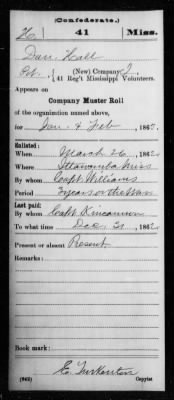 (Confederate.)
H 41 Miss.
Dan Hall
Pvt., (New) Company I,
41 Reg't Mississippi Volunteers.
Appears on
Company Muster Roll
of the organization named above,
for Jan & Feb, 186
Enlisted:
When March 26, 186
Where Ittawamba Miss
By whom Capt Williams
Period 3 years or the War
Last paid:
By whom Capt Kincannon
To what time Dec 31, 186
Present or absent Present
Remarks:
Book mark:
(642) Copyist